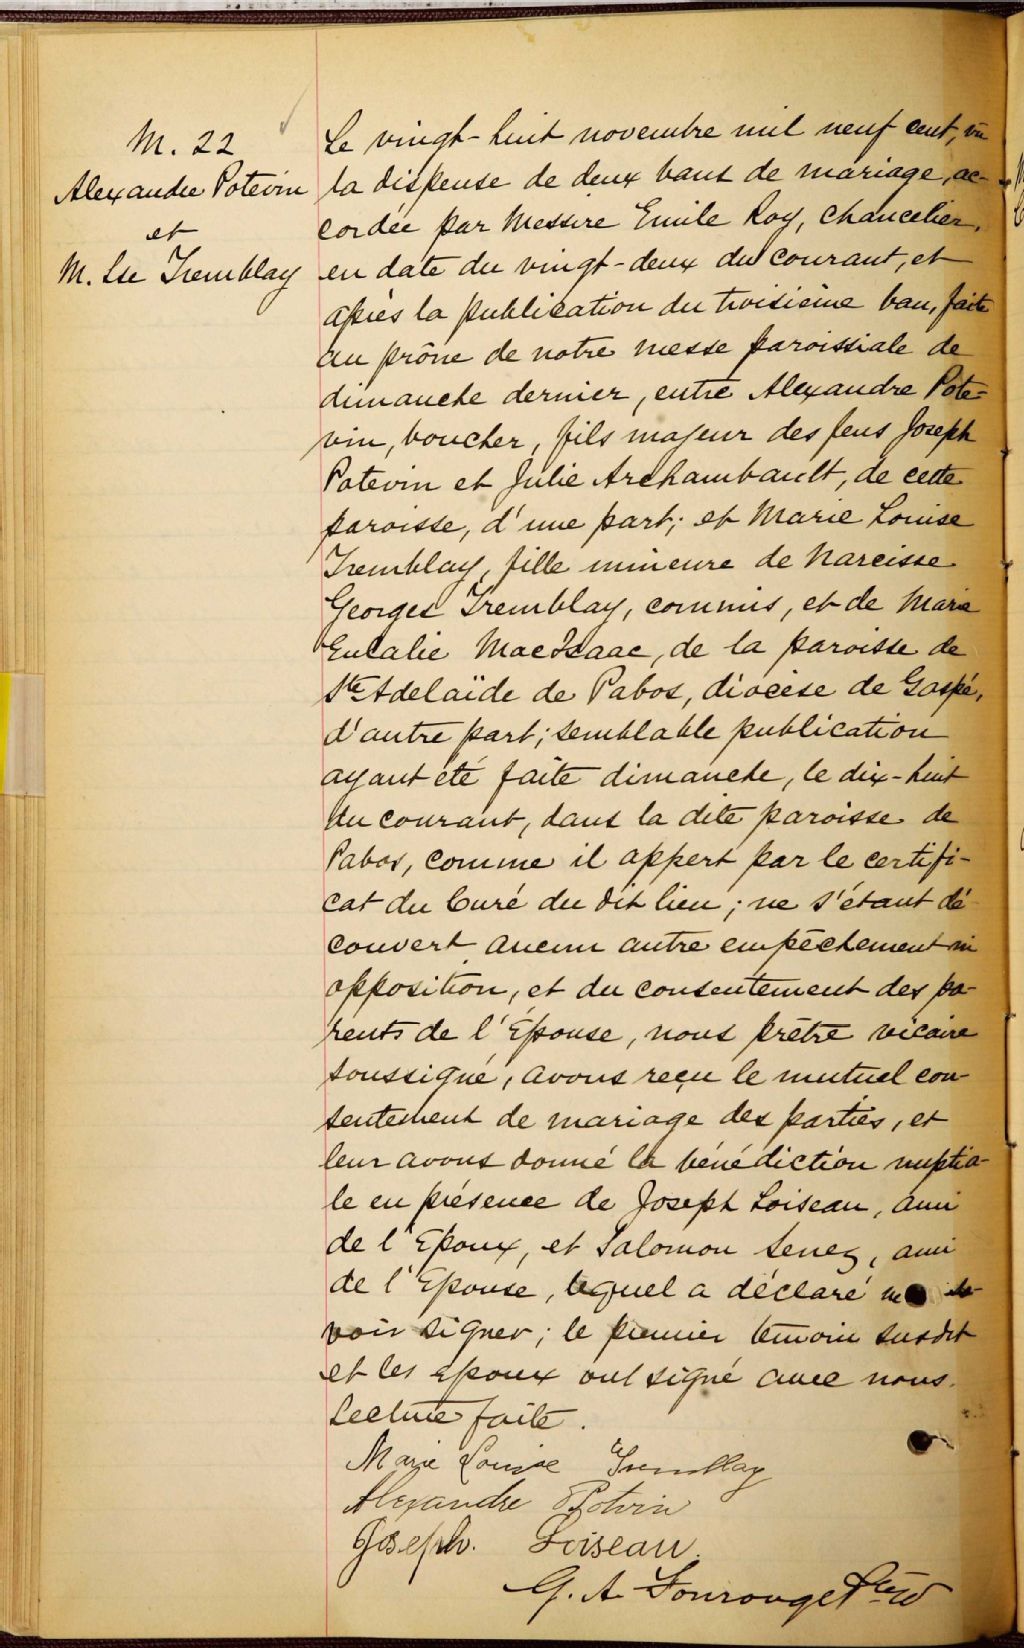 M. 22
Alexandre Potevin
et
M. Lse Tremblay
Le vingt-huit novembre mil neuf cent, vu
la dispense de deux bans de mariage, ac-
cordée par Messire Emile Roy, chancelier,
en date du vingt-deux du courant, et
après la publication du troisième ban, faite
au prône de notre messe paroissiale de
dimanche dernier, entre Alexandre Pote-
vin, boucher, fils majeur des feus Joseph
Potevin et Julie Archambault, de cette
paroisse, d'une part; et Marie Louise
Tremblay, fille mineure de Narcisse
Georges Tremblay, commis, et de Marie
Eulalie MacIsaac, de la paroisse de
Ste Adelaïde de Pabos, diocèse de Gaspé,
d'autre part; semblable publication
ayant été faite dimanche, le dix-huit
du courant, dans la dite paroisse de
Pabos, comme il appert par le certifi-
cat du Curé du dit lieu; ne s'étant dé-
couvert aucun autre empêchement ni
opposition, et du consentement des pa-
rents de l'Épouse, nous prêtre vicaire
soussigné, avons reçu le mutuel con-
sentement de mariage des parties, et
leur avons donné la bénédiction nuptia-
le en présence de Joseph Loiseau, ami
de l'Epoux, et Salomon Senez, ami
de l'Epouse, lequel a déclaré ne sa-
voir signer; le premier témoin susdit
et les époux ont signé avec nous.
Lecture faite.
Marie Louise Tremblay
Alexandre Potvin
Joseph. Loiseau.
G. A.